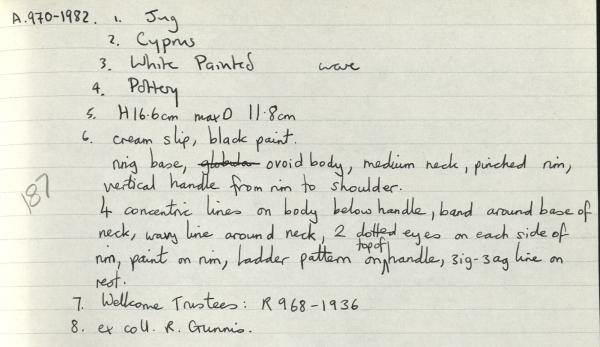 A.970-1982. 1. Jug
2. Cyprus
3. White Painted ware
4. Pottery
5. H 16.6cm max D 11.8cm
6. cream slip, black paint.
ring base, globular ovoid body, medium neck, pinched rim,
vertical handle from rim to shoulder.
4 concentric lines on body below handle, band around base of
neck, wavy line around neck, 2 dotted eyes on each side of
rim, paint on rim, ladder pattern on top of handle, zig-zag line on
rest.
187
7. Wellcome Trustees: R 968-1936
8. ex coll. R. Gunnis.